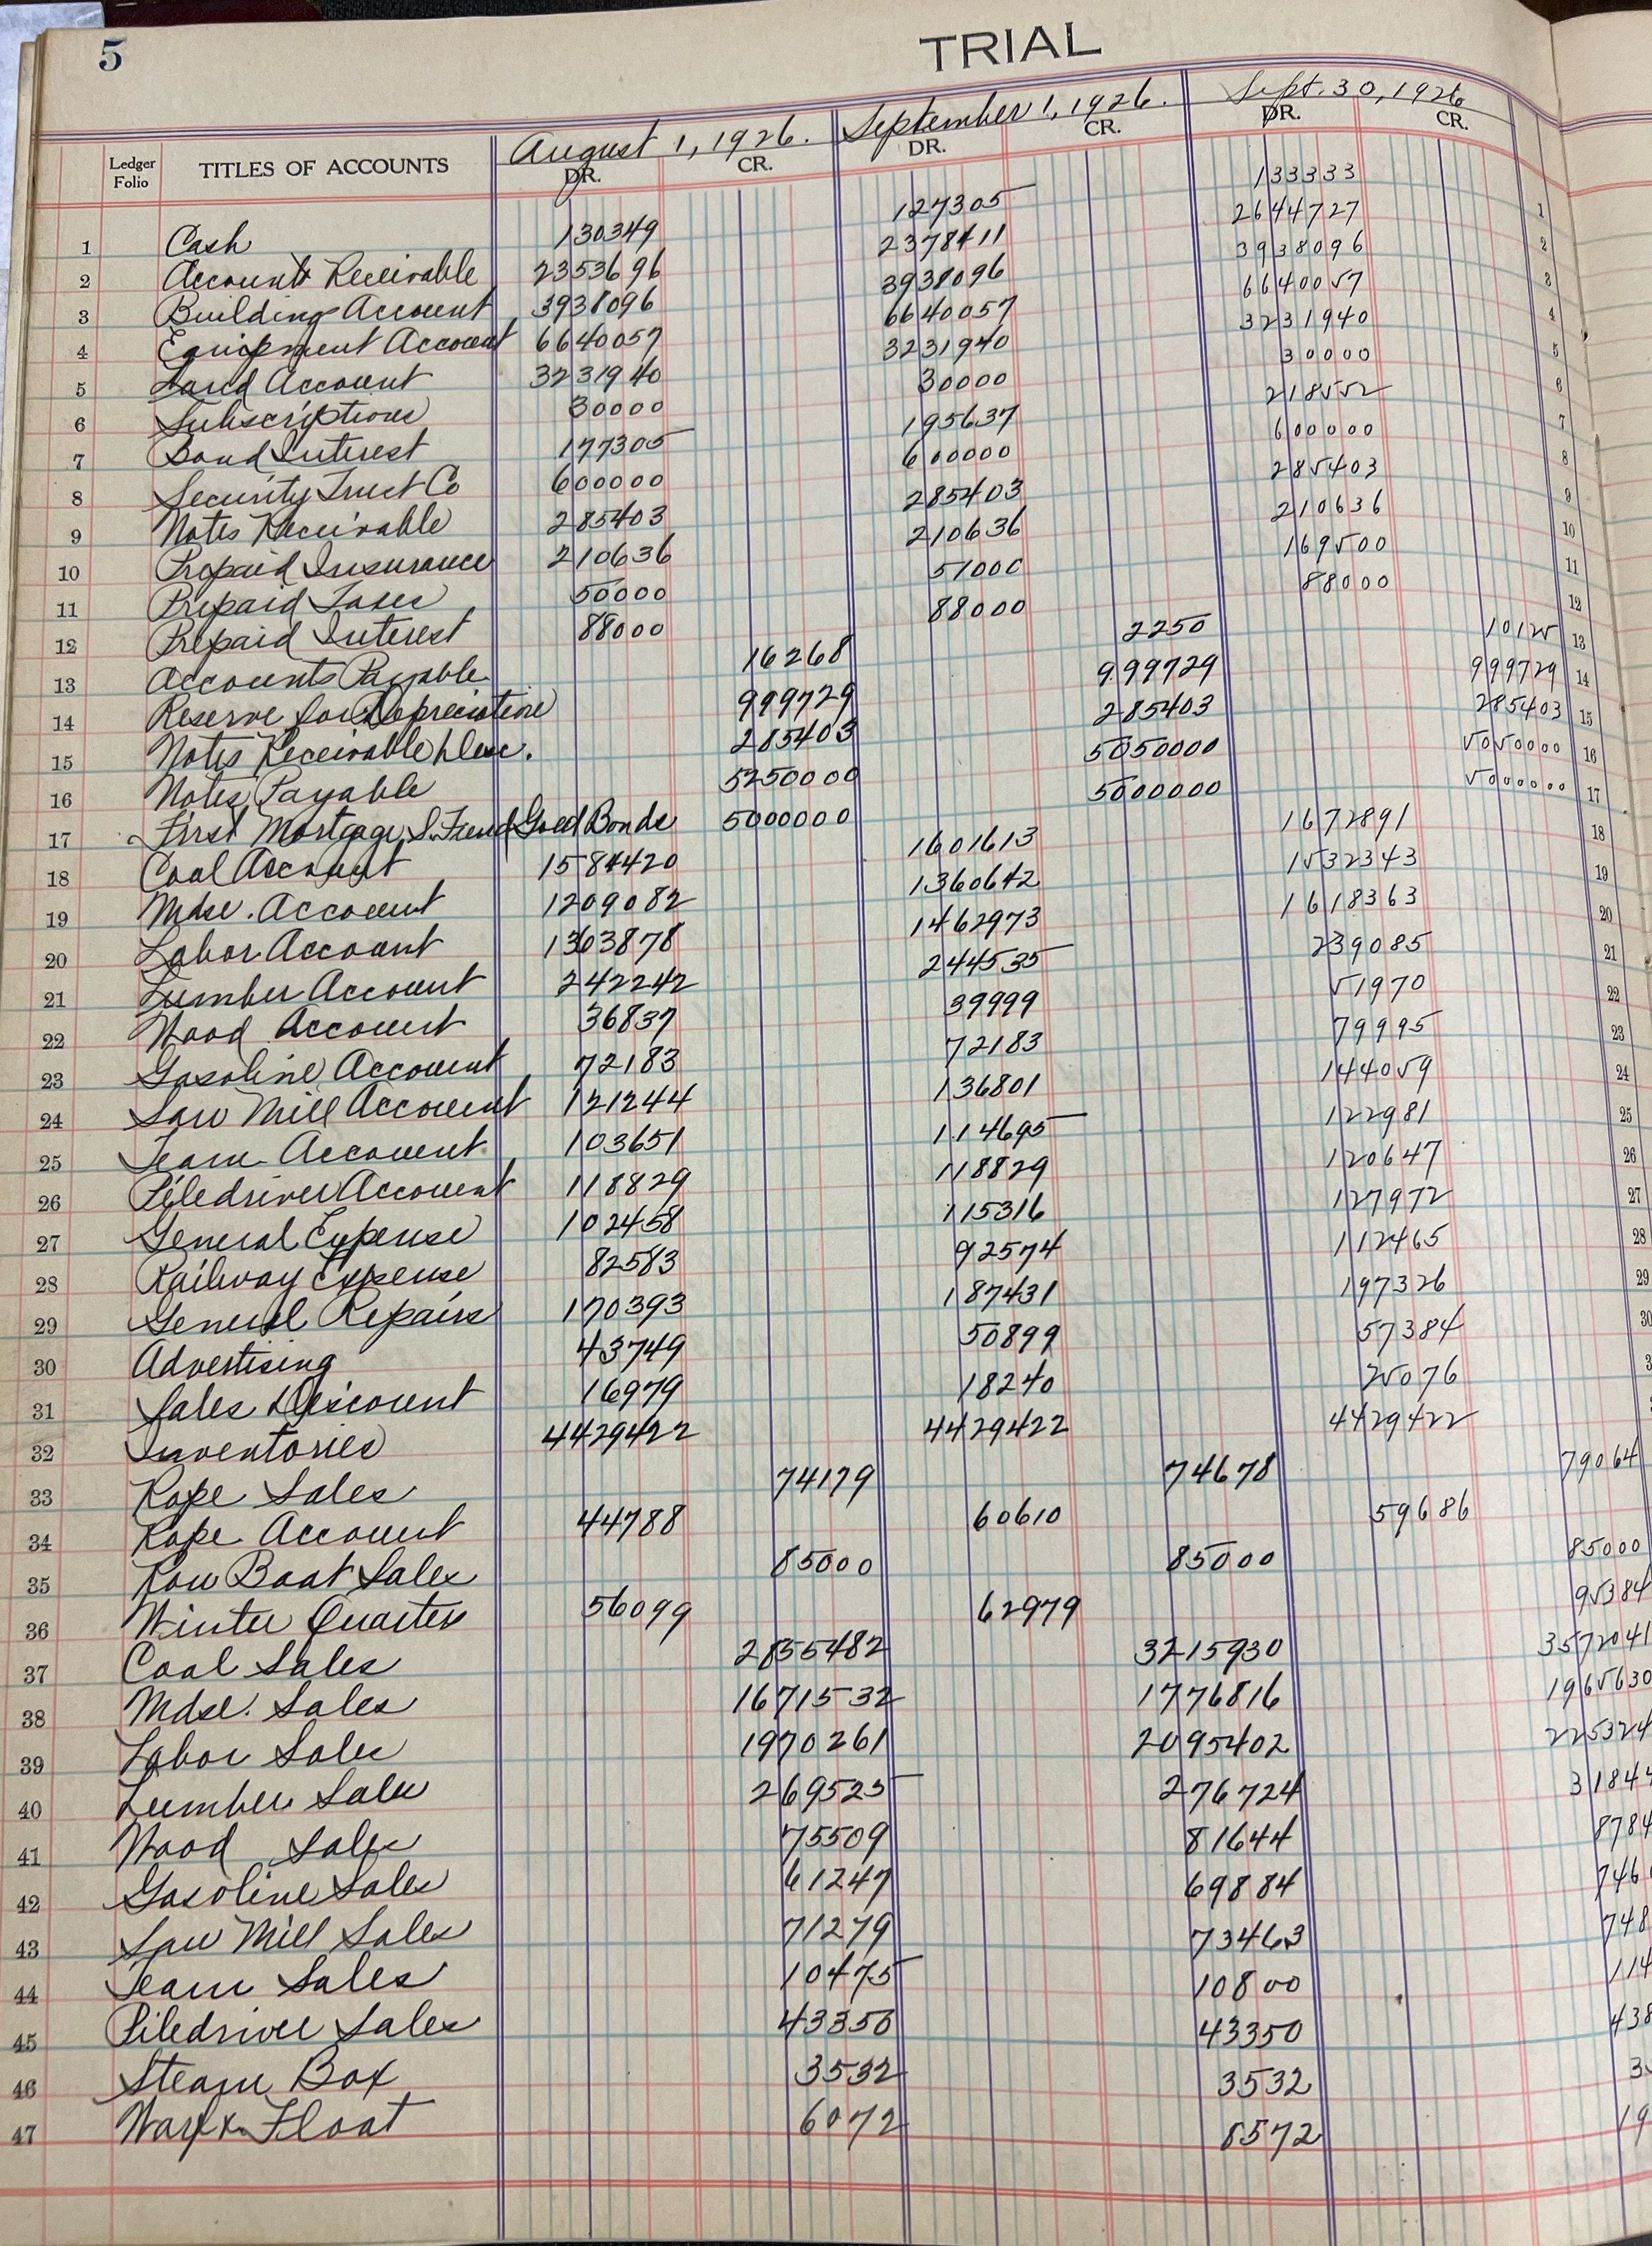 5
TRIAL
August 1, 1926. September 1, 1926. Sept. 30, 1926
Ledger Folio TITLES OF ACCOUNTS DR. CR. DR. CR. DR. CR.
1 Cash 130349 127305 133333 1
2 Accounts Receivable 2353696 2378411 2644727 2
3 Building Account 3938096 3938096 3938096 3
4 Equipment Account 6640057 6640057 6640057 4
5 Land Account 3231940 3231940 3231940 5
6 Subscriptions 30000 30000 30000 6
7 Bond Interest 177305 195637 218552 7
8 Security Trust Co 600000 600000 600000 8
9 Notes Receivable 285403 285403 285403 9
10 Prepaid Insurance 210636 210636 210636 10
11 Prepaid Taxes 50000 51000 169500 11
12 Prepaid Interest 88000 88000 88000 12
13 Accounts Payable 16268 2250 10125 13
14 Reserve for Depreciation 999729 999729 999729 14
15 Notes Receivable Disc. 285403 285403 285403 15
16 Notes Payable 5250000 5050000 5050000 16
17 First Mortgage S. Fund Gold Bonds 5000000 5000000 5000000 17
18 Coal Account 1584420 1601613 1672891 18
19 Mdse. Account 1209082 1360642 1532343 19
20 Labor Account 1363878 1462973 1618363 20
21 Lumber Account 242242 244535 239085 21
22 Wood Account 36837 39999 51970 22
23 Gasoline Account 72183 72183 79995 23
24 Saw Mill Account 121244 136801 144059 24
25 Team Account 103651 114695 122981 25
26 Piledriver Account 118829 118829 120647 26
27 General Expense 102458 115316 127972 27
28 Railway Expense 82583 92574 112465 28
29 General Repairs 170393 187431 197326 29
30 Advertising 43749 50899 57384 30
31 Sales Discount 16979 18240 25076
32 Inventories 4429422 4429422 4429422
33 Rope Sales 74179 74678 79064
34 Rope Account 44788 60610 59686
35 Row Boat Sales 85000 85000 85000
36 Winter Quarters 56099 62979 95384
37 Coal Sales 2855482 3215930 3572041
38 Mdse. Sales 1671532 1776816 1965630
39 Labor Sales 1970261 2095402 225324
40 Lumber Sales 269525 276724 31844
41 Wood Sales 75509 81644 8784
42 Gasoline Sales 61247 69884 746
43 Saw Mill Sales 71279 73463 748
44 Team Sales 10475 10800 114
45 Piledriver Sales 43350 43350 438
46 Steam Box 3532 3532 3
47 Float 6072 8572 19